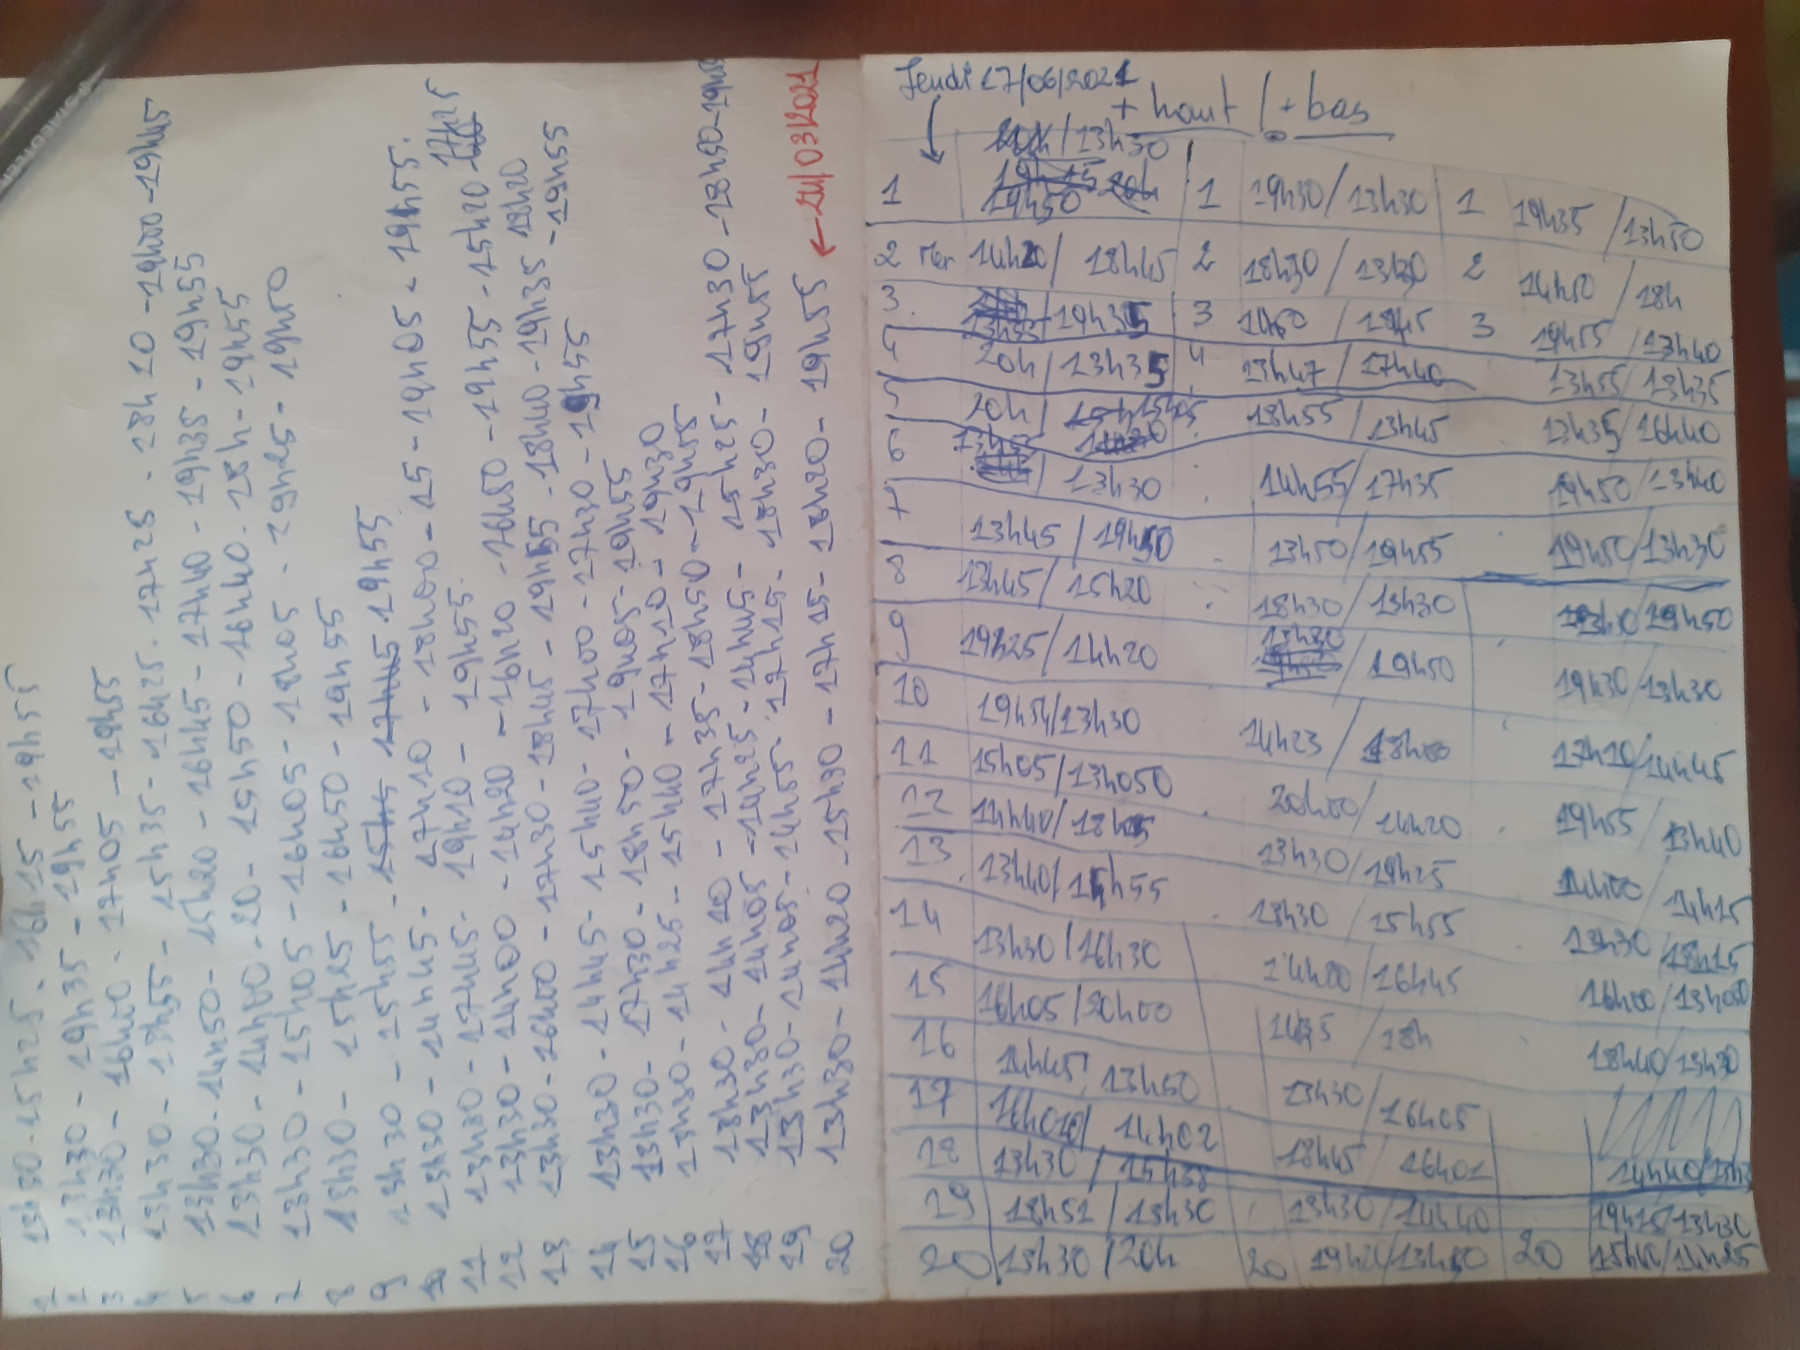 Jeudi 17/06/2021
+ haut / + bas
/13h30
1 19h50 1 19h30/13h30 1 19h35/13h50
2 Mer 14h20/18h45 2 18h30/13h30 2 14h50/18h
3 /19h35 3 /19h45 3 19h55/13h40
20h/13h35 4 13h47/17h40 13h55/18h35
5 20h/ 18h55/13h45 13h35/16h40
6 /13h30 14h55/17h35 19h50/13h40
7 13h45/19h50 13h50/19h55 19h50/13h30
8 13h45/15h20 18h30/13h30 /19h50
9 19h25/14h20 13h30/19h50 19h30/13h30
10 19h54/13h30 14h23/18h00 17h10/14h45
11 15h05/13h050 20h00/14h20 19h55/13h40
12 14h40/18h45 13h30/19h25 14h00/14h15
13 13h40/15h55 18h30/15h55 13h30/18h15
14 13h30/16h30 14h00/16h45 16h00/13h050
15 16h05/20h00 /18h 18h40/13h30
16 14h45 13h50 13h30/16h05
17 16h010/14h02 18h45/16h01 14h40/
18 13h30/15h58 13h30/14h40 19h15/13h30
19 18h51/13h30
20 13h30/20h 20 /13h30 20 15h40/14h25
1 13h30-15h25-16h15-19h55
2 13h30-19h35-19h55
3 13h30-16h00-17h05-19h55
4 13h30-13h55-15h35-16h25-17h25-18h10-19h00-19h45
5 13h30-14h50-15h20-16h45-17h40-19h35-19h55
6 13h30-14h00-20-15h50-16h40-18h-19h55
7 13h30-15h05-16h05-18h05-19h25-19h50
8 13h30-15h25-16h50-19h55
9 13h30-15h55-15h45 17h45 19h55
10 13h30-14h45-17h10-18h00-15-19h05-19h55
11 13h30-17h45-19h10-19h55
12 13h30-14h00-14h20-16h20-16h50-19h55-15h20 17h25
13 13h30-16h00-17h30-18h45-19h55-18h40-19h35 18h20-19h55
14 13h30-14h45-15h40-17h00-17h30-19h55
15 13h30-17h30-18h50-19h05-19h55
16 13h30-14h25-15h40-17h10-19h30
17 13h30-14h10-17h35-18h50-19h55
18 13h30-14h05-14h25-14h45-15h25-17h30-18h50-19h45
19 13h30-14h05-14h55-17h15-18h30-19h55
20 13h30-14h20-15h30-17h15-18h20-19h55 ←24/03/2021